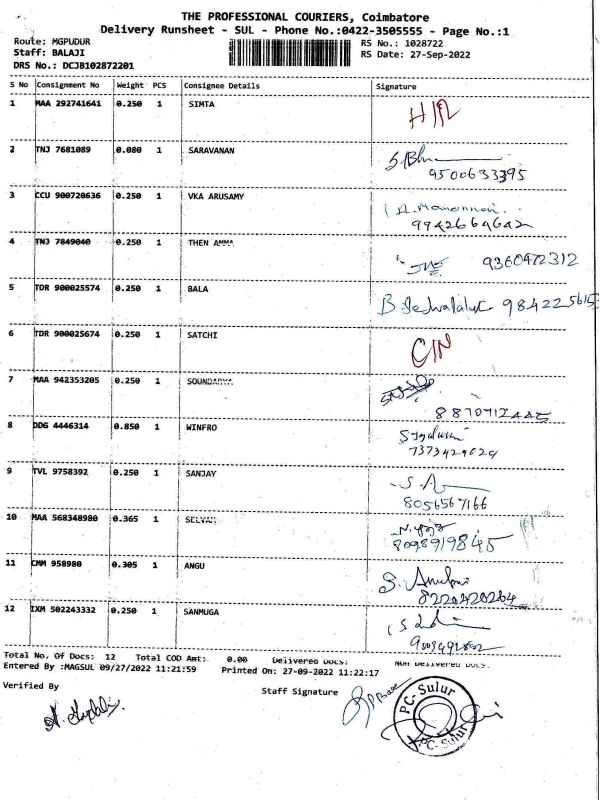 THE PROFESSIONAL COURIERS, Coimbatore
Delivery Runsheet - SUL - Phone No.:0422-3505555 - Page No.:1
Route: MGPUDUR
RS No.: 1028722
Staff: BALAJI
RS Date: 27-Sep-2022
DRS No.: DCJB102872201
S No Consignment No Weight PCS Consignee Details Signature
1 MAA 292741641 0.250 1 SIMTA
2 TNJ 7681089 0.080 1 SARAVANAN
9500633395
3 CCU 900720636 0.250 1 VKA ARUSAMY
9942664642
4 TNJ 7849040 0.250 1 THEN AMMA 9360472312
5 TDR 900025574 0.250 1 BALA
6 TDR 900025674 0.250 1 SATCHI
7 MAA 942353205 0.250 1 SOUNDARYA
8870712445
8 DDG 4446314 0.850 1 WINFRO
7373429024
9 TVL 9758392 0.250 1 SANJAY
8056567166
10 MAA 568348980 0.365 1 SELVAM
8098919845
11 CMM 958980 0.305 1 ANGU
8220420264
12 IXM 502243332 0.250 1 SANMUGA
Total No. Of Docs: 12 Total COD Amt: 0.00 Delivered Docs: Non Delivered Docs:
Entered By :MAGSUL 09/27/2022 11:21:59 Printed On: 27-09-2022 11:22:17
Verified By
Staff Signature
PC-Sulur
PC-Sulur